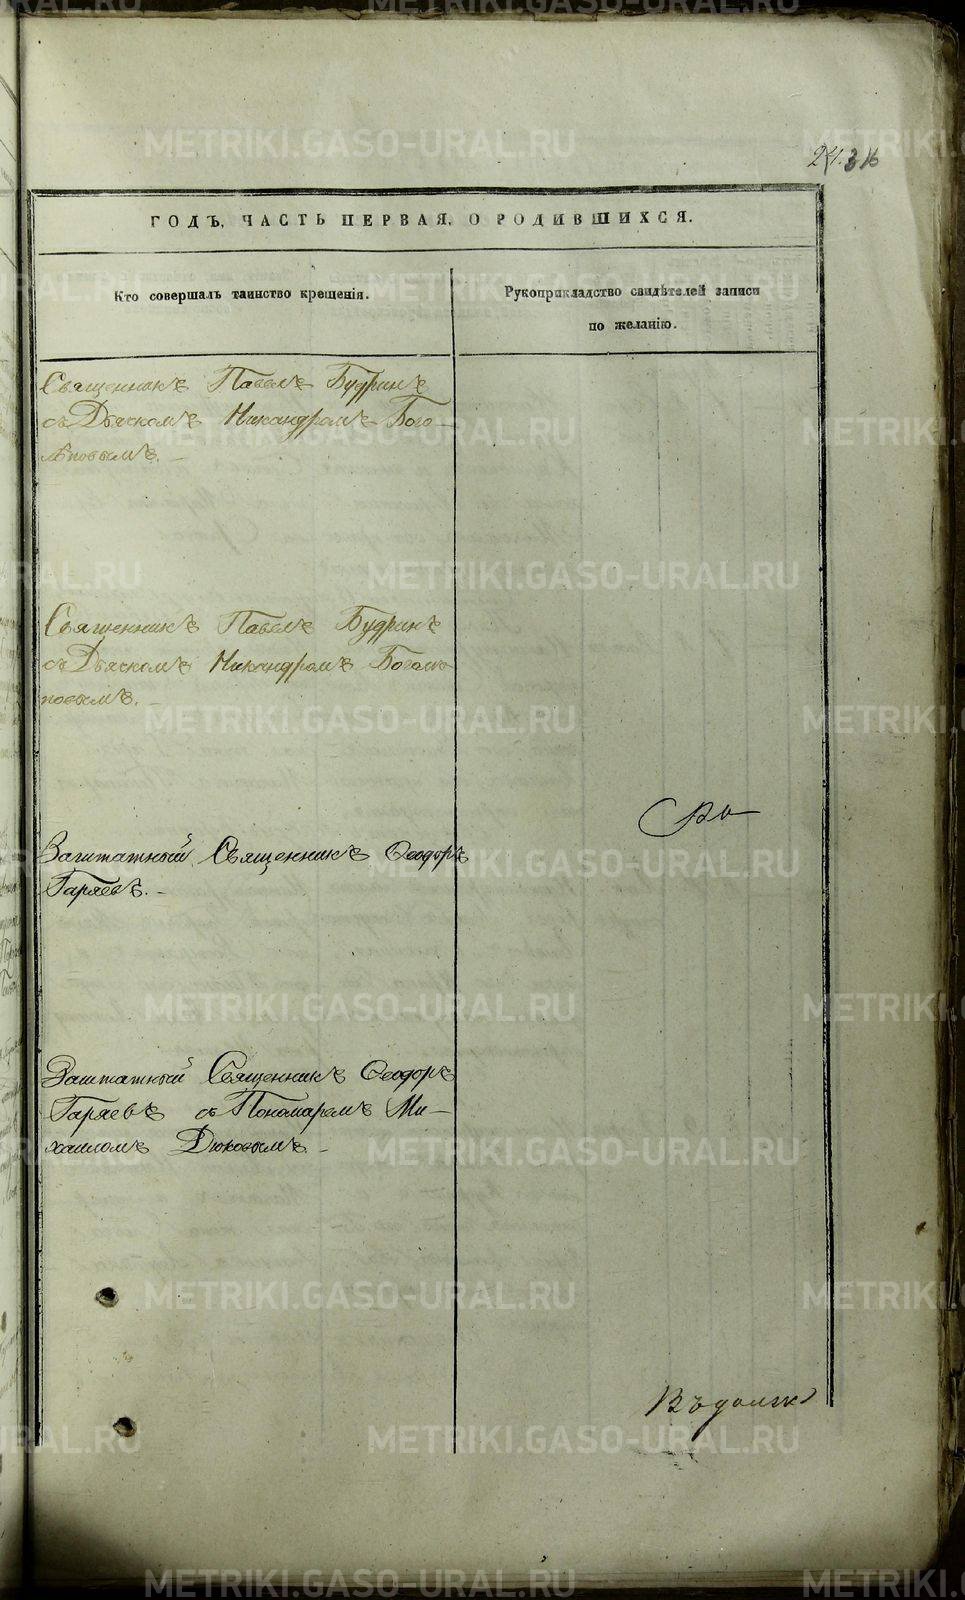 24. 316
ГОДЪ, ЧАСТЬ ПЕРВАЯ, О РОДИВШИХСЯ.
Кто совершалъ таинство крещенія.
Рукоприкладство свидѣтелей записи
по желанію.
Священникъ Павелъ Будринъ
съ Дьячкомъ Никандромъ Бого-
лѣповымъ. -
Священникъ Павелъ Будринъ
съ Дьячкомъ Никандромъ Боголѣ-
повымъ. -
Заштатный Священникъ Ѳеодоръ
Гаряевъ. -
Заштатный Священникъ Ѳеодоръ
Гаряевъ съ Пономаремъ Ми-
хаиломъ Дюковымъ. -
METRIKI.GASO-URAL.RU